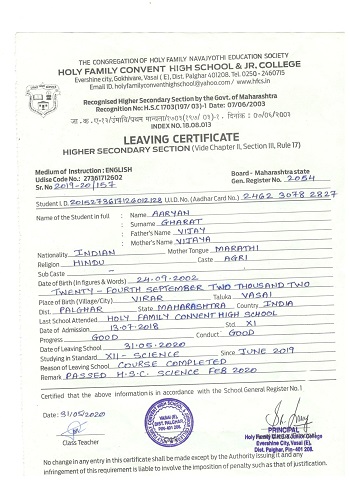 THE CONGREGATION OF HOLY FAMILY NAVAJYOTHI EDUCATION SOCIETY
HOLY FAMILY CONVENT HIGH SCHOOL & JR. COLLEGE
Evershine city, Gokhivare, Vasai ( E), Dist. Palghar 401208. Tel. 0250 -2460715
Email ID. holyfamilyconventhighschool@yahoo.com / www.hfcs.in
Recognised Higher Secondary Section by the Govt. of Maharashtra
Recognition No: H.S.C 1703(197/ 03)-1 Date: 07/06/2003
INDEX NO. 18.08.013
LEAVING CERTIFICATE
HIGHER SECONDARY SECTION (Vide Chapter II, Section III, Rule 17)
Medium of Instruction : ENGLISH Board - Maharashtra state
Udise Code No.: 27361712602 Gen. Register No. 2054
Sr. No 2019-20/157
Student I. D. U.I.D. No. (Aadhar Card No.) 2462 3078 2827
Name of the Student in full : Name AARYAN
: Surname GHARAT
: Father's Name VIJAY
: Mother's Name VIJAYA
Nationality INDIAN Mother Tongue MARATHI
Religion HINDU Caste AGRI
Sub Caste —
Date of Birth (In Figures & Words) 24-09-2002
TWENTY - FOURTH SEPTEMBER TWO THOUSAND TWO
Place of Birth (Village/City) VIRAR Taluka VASAI
Dist. PALGHAR State MAHARASHTRA Country INDIA
Last School Attended HOLY FAMILY CONVENT HIGH SCHOOL
Date of Admission 13-07-2018 Std XI
Progress GOOD Conduct GOOD
Date of Leaving School 31-05-2020
Studying in Standard XII - SCIENCE Since JUNE 2019
Reason of Leaving School COURSE COMPLETED
Remark PASSED H.S.C. SCIENCE FEB 2020
Certified that the above information is in accordance with the School General Register No.1
Date: 31/05/2020
VASAI (E), DIST. PALGHAR,
PRINCIPAL
Class Teacher
Holy Family C.H.S & Junior College
Evershine City, Vasai (E),
Dist. Palghar, Pin-401 208.
No change in any entry in this certificate shall be made except by the Authority issuing it and any
infringement of this requirement is liable to involve the imposition of penalty such as that of justification.